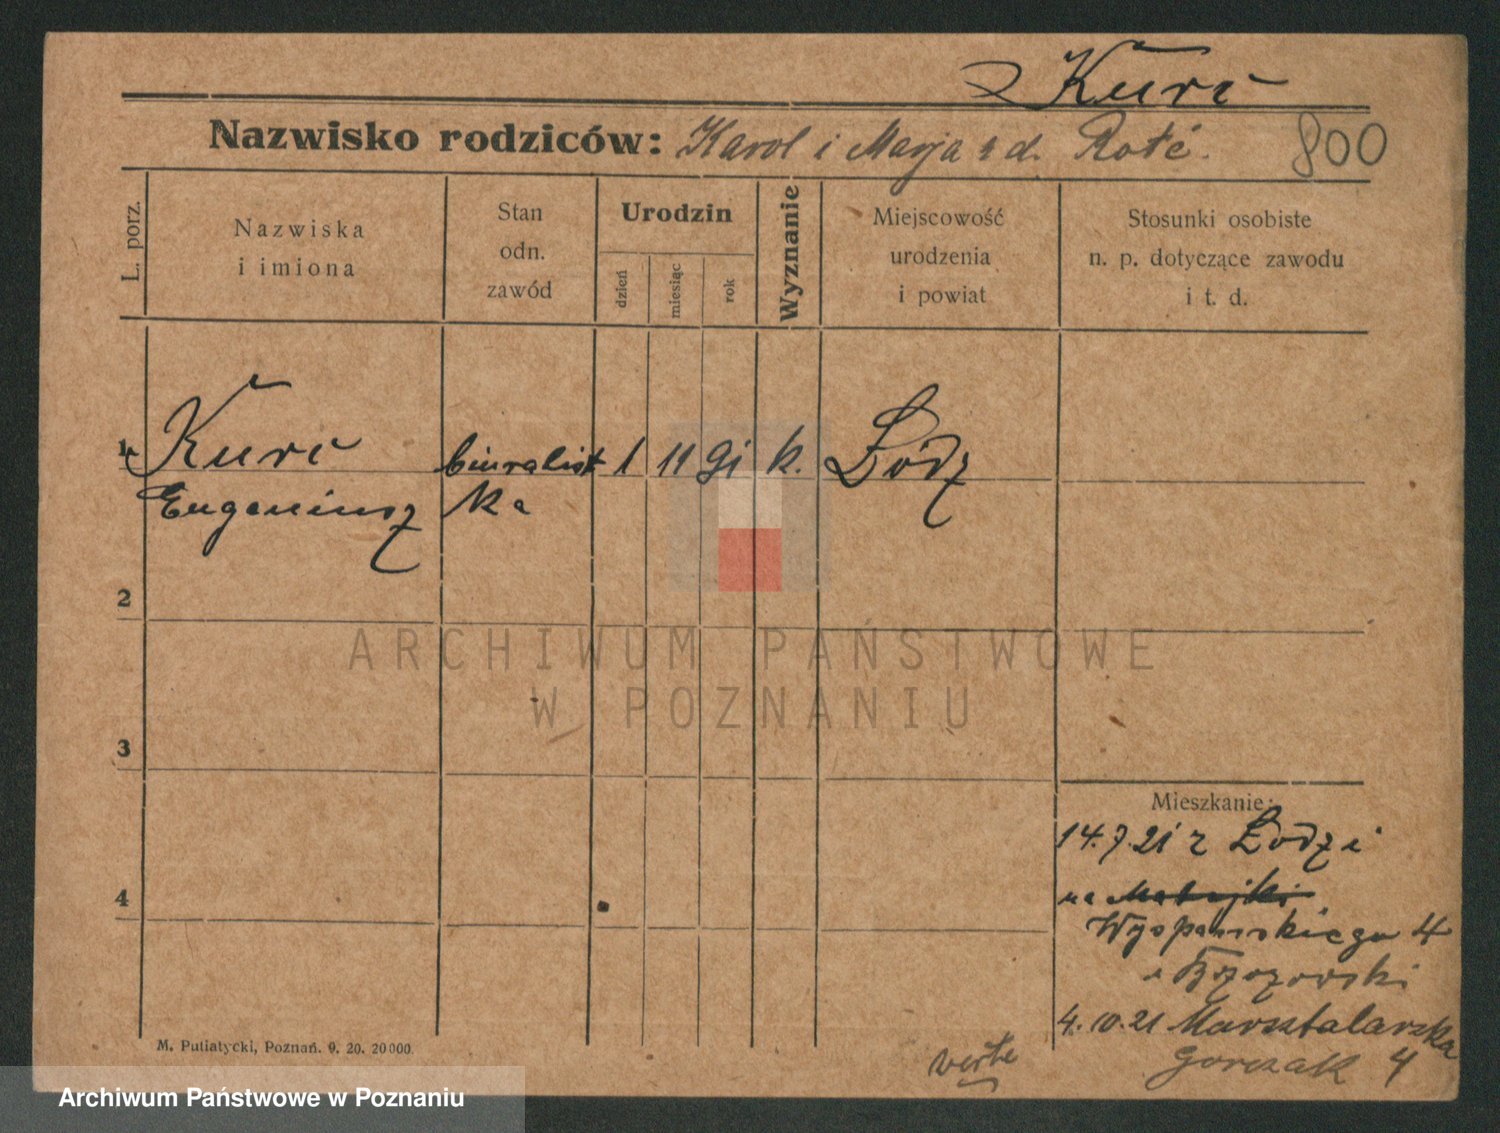 Kurc
Nazwisko rodziców: Karol i Marja z d. 800
L. porz.
Nazwiska
i imiona
Stan
odn.
zawód
Urodzin
dzień
miesiąc
rok
Wyznanie
Miejscowość
urodzenia
i powiat
Stosunki osobiste
n. p. dotyczące zawodu
i t. d.
1 Kurc biuralist 1 11 91 k. Łódź
Eugeniusz ka
2
3
4
ARCHIWUM PAŃSTWOWE
W POZNANIU
Mieszkanie:
14.7.21 z Łodzi
na Matejki
Wyspiańskiego 4
4.10.21 Marsztalarska
Gorczak 4
verte
M. Putiatycki, Poznań. 9. 20. 20000.
Archiwum Państwowe w Poznaniu